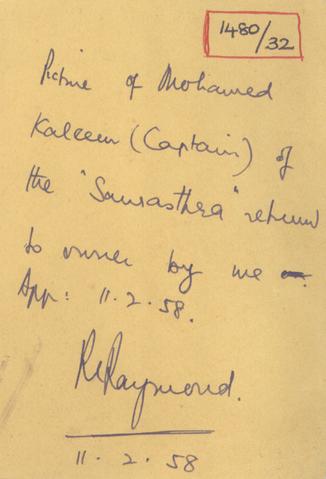 1480/32
Picture of Mohamed
Kaleem (Captain) of
the "Saurasthra" returned
to owner by me
App: 11.2.58.
Raymond.
11.2.58